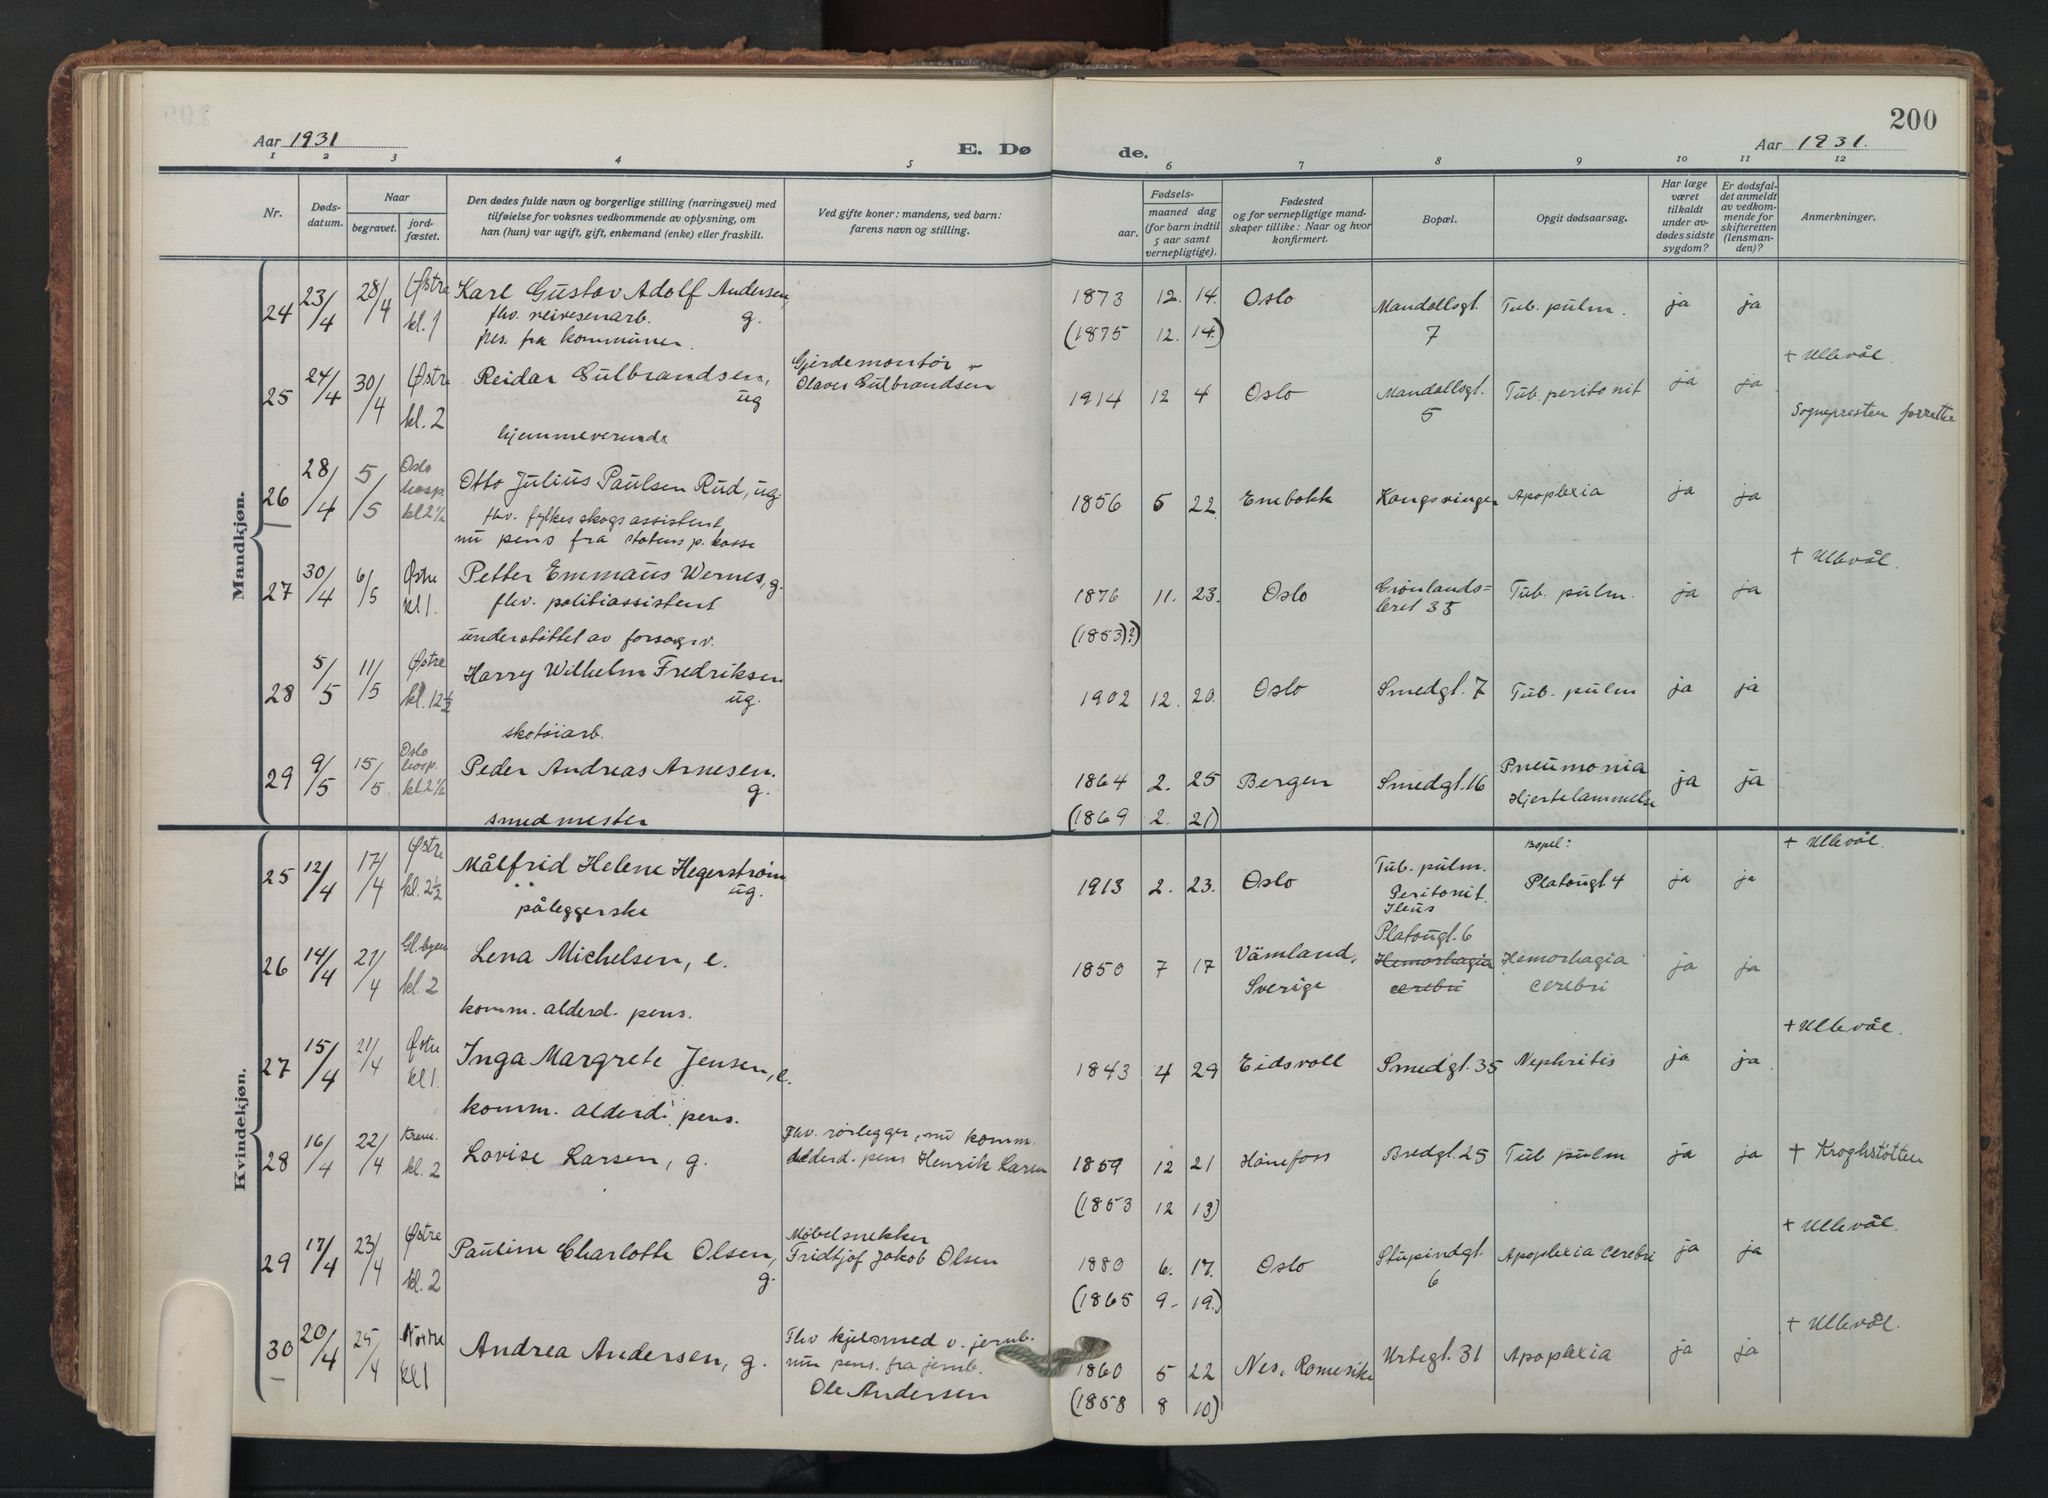 200
Aar 1931
E. Dø
de.
Aar 1931.
1 2 3 4 5 6 7 8 9 10 11 12
Nr.
Døds-
datum.
Naar
begravet.
jord-
fæstet.
Den dødes fulde navn og borgerlige stilling (næringsvei) med
tilføielse for voksnes vedkommende av oplysning, om
han (hun) var ugift, gift, enkemand (enke) eller fraskilt.
Ved gifte koner: mandens, ved barn:
farens navn og stilling.
Fødsels-
aar.
maaned dag
(for barn indtil
5 aar samt
vernepligtige).
Fødested
og for vernepligtige mand-
skaper tillike: Naar og hvor
konfirmert.
Bopæl.
Opgit dødsaarsag.
Har læge
været
tilkaldt
under av-
dødes sidste
sygdom?
Er dødsfal-
det anmeldt
av vedkom-
mende for
skifteretten
(lensman-
den)?
Anmerkninger.
Mandkjøn.
24 23/4 28/4 Østre kl. 1 Karl Gustav Adolf Andersen, g. 1873 12. 14. Oslo Mandallsgt. 7 Tub. pulm. ja ja
fhv. reivesenarb.
pens. fra kommunen.
(1875 12. 14.)
+ Ullevål.
25 24/4 30/4 Østre kl. 2 Reidar Gulbrandsen, ug Gjerdemontør Olaves Gulbrandsen 1914 12 4 Oslo Mandallsgt. 5 Tub. peritonit ja ja
hjemmeverende
Sognepresten forrettet
26 28/4 5/5 Oslo hosp. kl 2½ Otto Julius Paulsen Rud, ug. 1856 5 22. Enebakk Kongsvinger Apoplexia ja ja
fhv. fylkesskogsassistent
nu pens fra statens p. kasse
+ Ullevål.
27 30/4 6/5 Østre kl 1. Petter Emmaus Wernes, g. 1876 11. 23. Oslo Grønlands=leret 35 Tub. pulm. ja ja
fhv. politiassistent
understøttet av forsorgsv.
(1853)?)
28 5/5 11/5 Østre kl. 12½ Harry Wilhelm Fredriksen ug. 1902 12. 20. Oslo Smedgt. 7 Tub. pulm ja ja
skotøiarb.
29 9/5 15/5 Oslo hosp. kl 2½ Peder Andreas Arnesen. g. 1864 2. 25 Bergen Smedgt. 16 Pneumonia Hjertelammelse ja ja
smedmester
(1869 2. 21)
Kvindekjøn.
Bopel:
+ Ullevål.
25 12/4 17/4 Østre kl. 2½ Målfrid Helene Hegerstrøm ug. 1913 2. 23. Oslo Tub. pulm. Peritonit. Ileus Platougt 4 ja ja
påleggerske
26 14/4 21/4 Gl. byen kl. 2 Lena Michelsen, e. 1850 7 17 Vämland, Sverige Platougt. 6 Hemorhagia cerebri Hemorhagia cerebri ja ja
komm. alderd. pens.
+ Ullevål.
27 15/4 21/4 Østre kl 1. Inga Margrete Jensen, e. 1843 4 29 Eidsvoll Smedgt. 35 Nephritis ja ja
komm. alderd. pens.
28 16/4 22/4 Krem. kl. 2 Lovise Larsen, g. Fhv. rørlegger, nu komm. alderd. pens Henrik Larsen 1859 12 21 Hønefoss Bredgt. 25 Tub pulm ja ja + Kroghstøtten
(1853 12 13)
+ Ullevål.
29 17/4 23/4 Østre kl. 2 Pauline Charlotte Olsen, g. Møbelsnekker Fridtjof Jakob Olsen 1880 6. 17. Oslo Stupindgt. 6 Apoplexia cerebri ja ja
(1865 9- 19.)
+ Ullevål.
30 20/4 25/4 Nordre kl 1 Andrea Andersen, g. Fhv kjelsmed v. jernb. nu pens. fra jernb. Ole Andersen 1860 5 22 Nes, Romerike Urtegt. 31 Apoplexia ja ja
(1858 8 10)